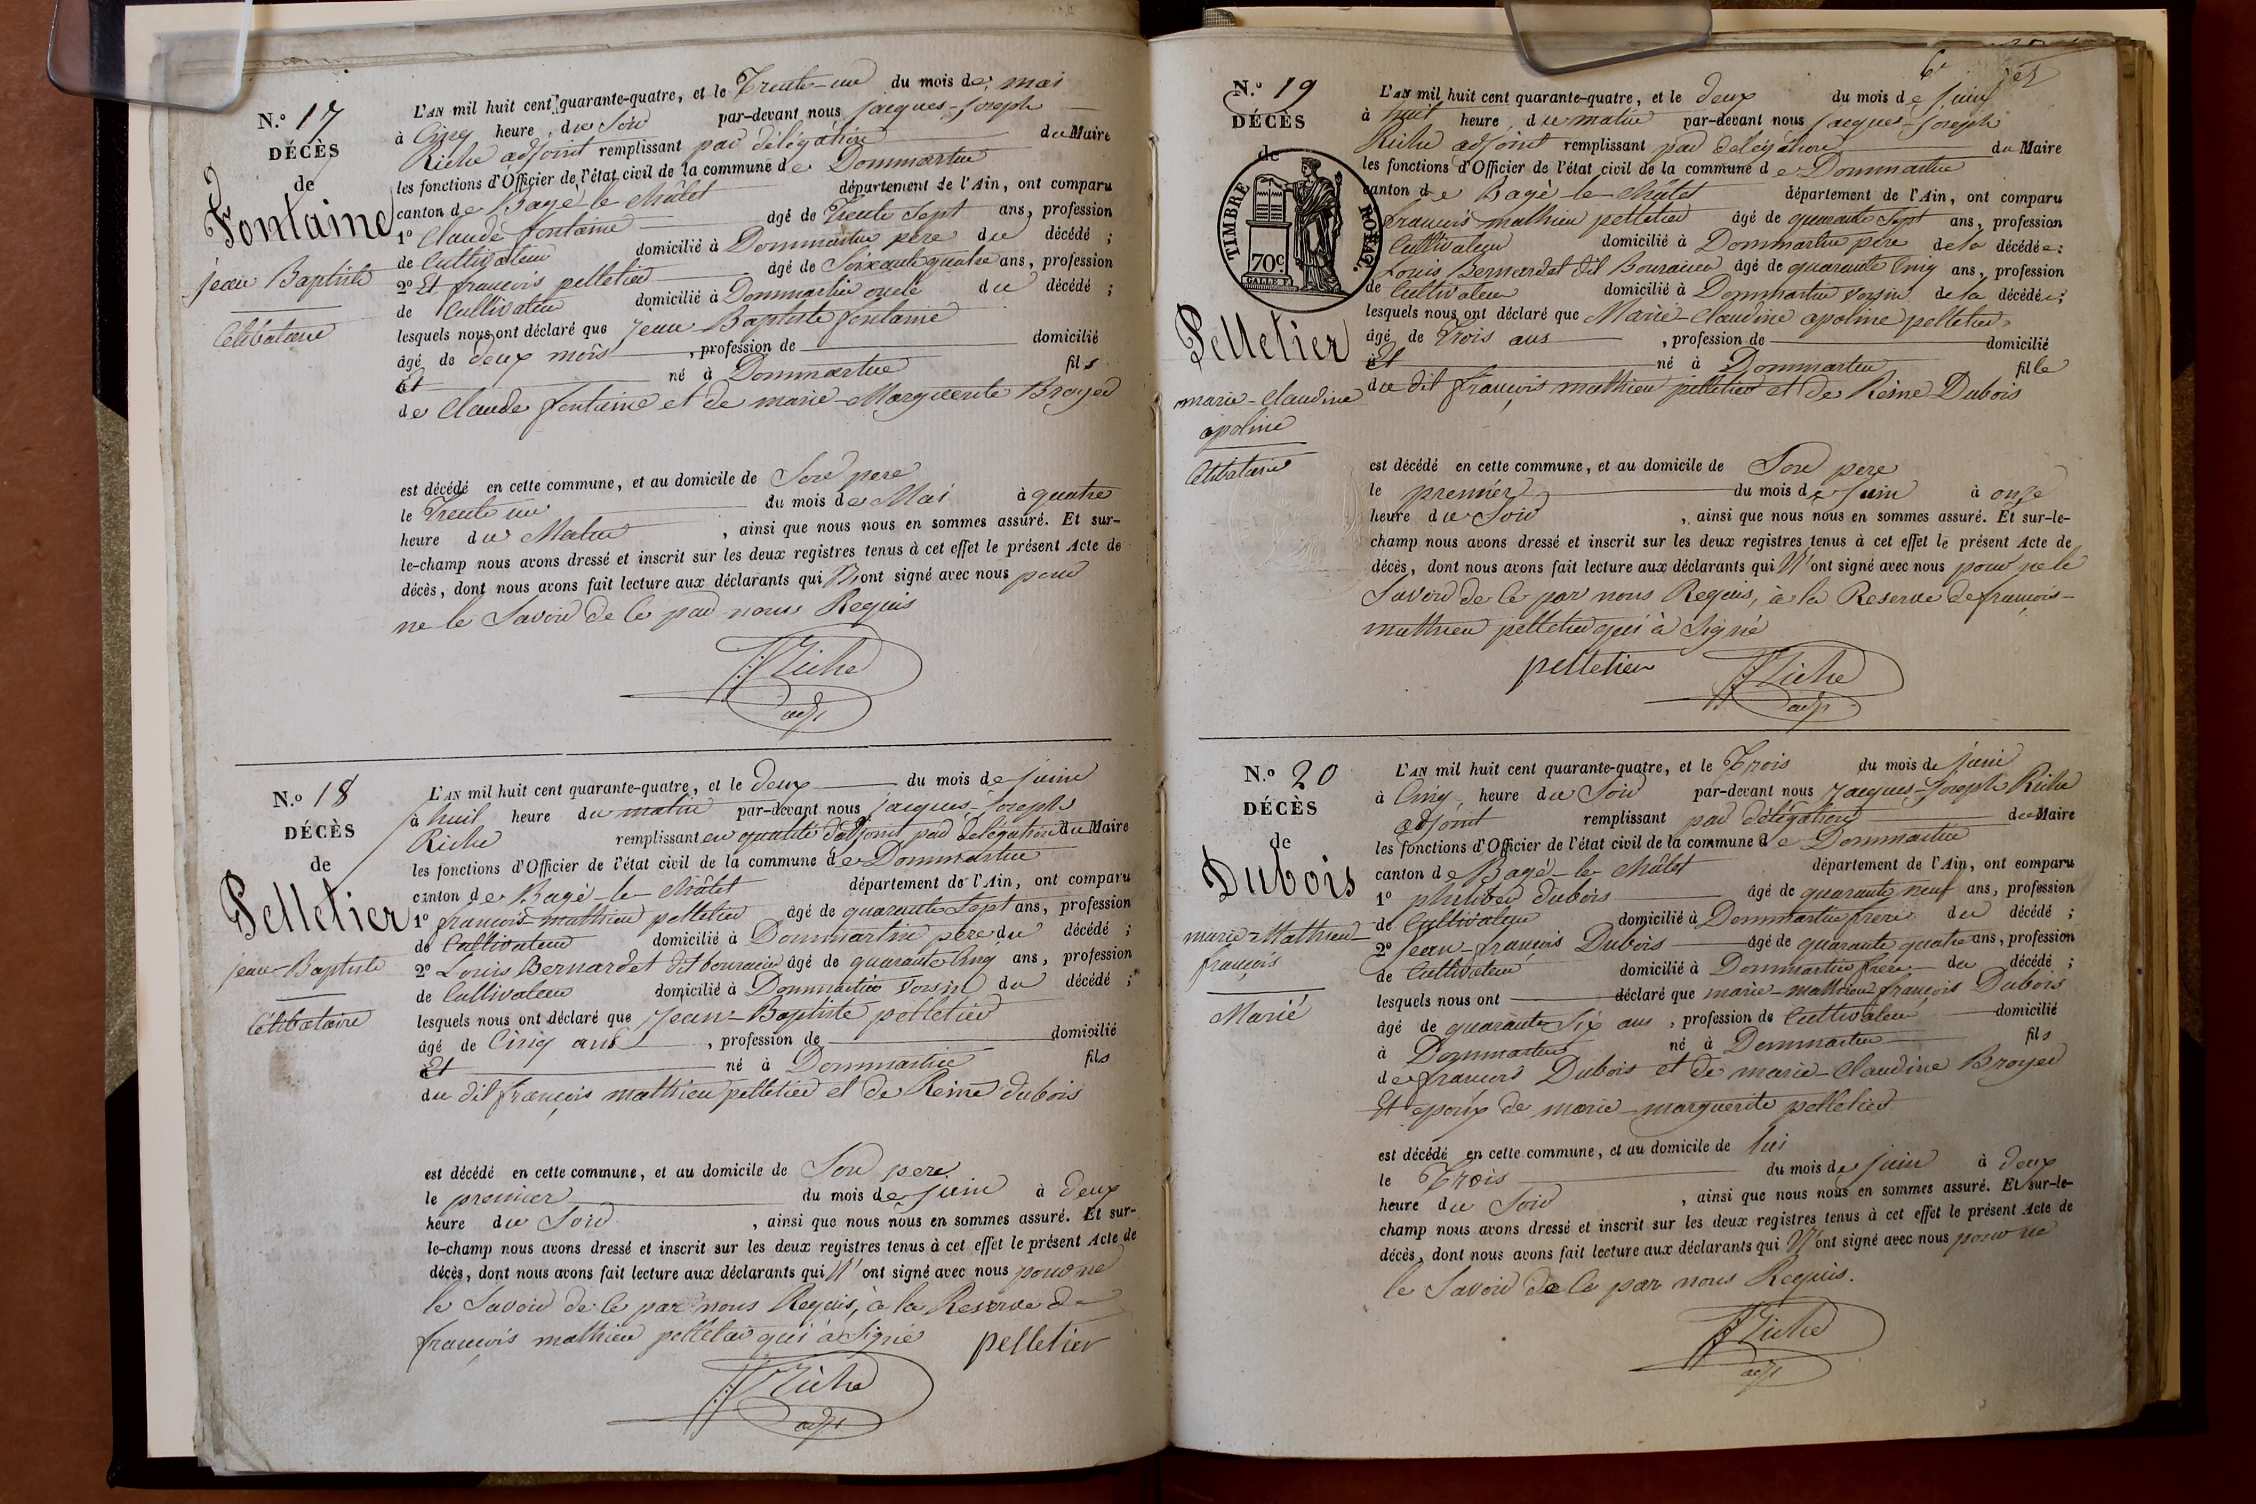 N.o 17
DÉCÈS
de
Fontaine
jean Baptiste
Célibataire
L'AN mil huit cent quarante-quatre, et le Trente-un du mois de mai
à Cinq heure du Soir par-devant nous jacques-joseph
Riche adjoint remplissant par délégation du Maire
les fonctions d'Officier de l'état civil de la commune de Dommartin
canton de Bagé-le-Châtel département de l'Ain, ont comparu
1o Claude fontaine âgé de Trente Sept ans, profession
de Cultivateur domicilié à Dommartin père du décédé ;
2o Et françois pelletier âgé de Soixante quatre ans, profession
de Cultivateur domicilié à Dommartin oncle du décédé ;
lesquels nous ont déclaré que jean Baptiste fontaine
âgé de deux mois , profession de domicilié
Et né à Dommartin fils
de Claude fontaine et de marie-Marguerite Broyer
est décédé en cette commune, et au domicile de Son père
le Trente un du mois de Mai à quatre
heure du Matin , ainsi que nous nous en sommes assuré. Et sur-
le-champ nous avons dressé et inscrit sur les deux registres tenus à cet effet le présent Acte de
décès, dont nous avons fait lecture aux déclarants qui N'ont signé avec nous pour
ne le Savoir de ce par nous Requis
Riche
adjt
N.o 18
DÉCÈS
de
Pelletier
jean-Baptiste
Célibataire
L'AN mil huit cent quarante-quatre, et le deux du mois de juin
à huit heure du matin par-devant nous jacques-joseph
Riche remplissant en qualité d'adjoint par délégation du Maire
les fonctions d'Officier de l'état civil de la commune de Dommartin
canton de Bagé-le-Châtel département de l'Ain, ont comparu
1o françois-mathieu pelletier âgé de quarante Sept ans, profession
de Cultivateur domicilié à Dommartin père du décédé ;
2o Louis Bernardet dit bouracier âgé de quarante Cinq ans, profession
de Cultivateur domicilié à Dommartin voisin du décédé ;
lesquels nous ont déclaré que jean-Baptiste pelletier
âgé de Cinq ans , profession de domicilié
Et né à Dommartin fils
du dit françois mathieu pelletier et de Reine Dubois
est décédé en cette commune, et au domicile de Son père
le premier du mois de juin à deux
heure du Soir , ainsi que nous nous en sommes assuré. Et sur-
le-champ nous avons dressé et inscrit sur les deux registres tenus à cet effet le présent Acte de
décès, dont nous avons fait lecture aux déclarants qui N'ont signé avec nous pour ne
le Savoir de ce par nous Requis, à la Reserve de
françois mathieu pelletier qui à Signé pelletier
Riche
adjt
N.o 19
DÉCÈS
de
TIMBRE ROYAL.
70c
Pelletier
marie-Claudine
apoline
Célibataire
L'AN mil huit cent quarante-quatre, et le deux du mois de juin
à huit heure du matin par-devant nous jacques-joseph
Riche adjoint remplissant par délégation du Maire
les fonctions d'Officier de l'état civil de la commune de Dommartin
canton de Bagé-le-Châtel département de l'Ain, ont comparu
françois mathieu pelletier âgé de quarante Sept ans, profession
Cultivateur domicilié à Dommartin père de la décédée ;
Louis Bernardet dit Bouracier âgé de quarante Cinq ans, profession
de Cultivateur domicilié à Dommartin voisin de la décédée ;
lesquels nous ont déclaré que Marie-Claudine apoline pelletier
âgé de Trois ans , profession de domicilié
Et né à Dommartin fille
du dit françois mathieu pelletier et de Reine Dubois
est décédé en cette commune, et au domicile de Son père
le premier du mois de juin à onze
heure du Soir , ainsi que nous nous en sommes assuré. Et sur-le-
champ nous avons dressé et inscrit sur les deux registres tenus à cet effet le présent Acte de
décès, dont nous avons fait lecture aux déclarants qui N'ont signé avec nous pour ne le
Savoir de ce par nous Requis, à la Reserve de françois-
mathieu pelletier qui à Signé
pelletier Riche
adjt
N.o 20
DÉCÈS
de
Dubois
marie-Mathieu-
françois
Marié
L'AN mil huit cent quarante-quatre, et le Trois du mois de juin
à Cinq heure du Soir par-devant nous jacques-joseph Riche
adjoint remplissant par délégation du Maire
les fonctions d'Officier de l'état civil de la commune de Dommartin
canton de Bagé-le-Châtel département de l'Ain, ont comparu
1o philibert Dubois âgé de quarante neuf ans, profession
de Cultivateur domicilié à Dommartin frère du décédé ;
2o jean-françois Dubois âgé de quarante quatre ans, profession
de Cultivateur domicilié à Dommartin frère du décédé ;
lesquels nous ont déclaré que marie-mathieu-françois Dubois
âgé de quarante Six ans , profession de Cultivateur domicilié
à Dommartin né à Dommartin fils
de françois Dubois et de marie-Claudine Broyer
Et époux de marie-marguerite pelletier
est décédé en cette commune, et au domicile de lui
le Trois du mois de juin à deux
heure du Soir , ainsi que nous nous en sommes assuré. Et sur-le-
champ nous avons dressé et inscrit sur les deux registres tenus à cet effet le présent Acte de
décès, dont nous avons fait lecture aux déclarants qui N'ont signé avec nous pour ne
le Savoir de ce par nous Requis.
Riche
adjt